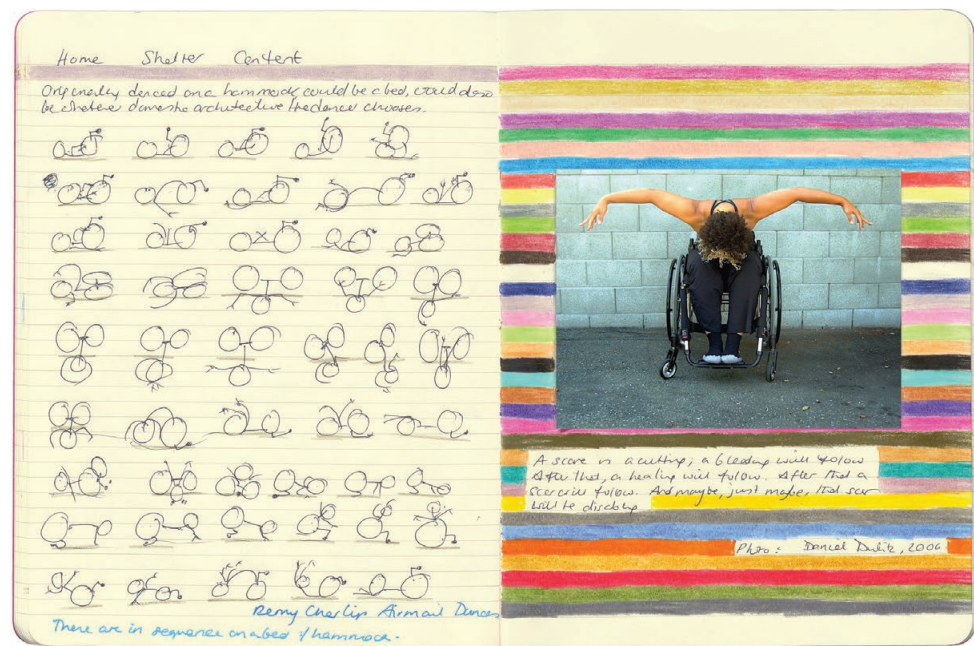 Home Shelter Content
Originally danced on a hammock, could be a bed, could also
be whatever domestic architective the dancer chooses.
Remy Charlip Airmail Dances
There are in sequence on a bed / hammock.
A score is a cutting; a bleeding will follow
After that, a healing will follow. After that a
scar will follow. And maybe, just maybe, that scar
will be
Photo: Daniel 2006